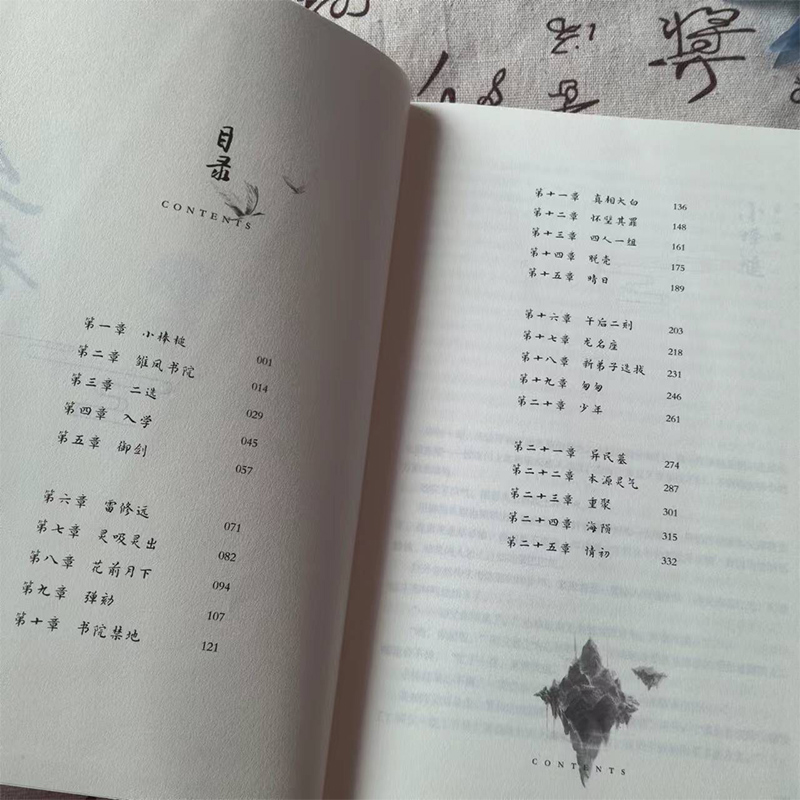 目录
CONTENTS
第一章 小棒槌 001
第二章 雏凤书院 014
第三章 二选 029
第四章 入学 045
第五章 御剑 057
第六章 雷修远 071
第七章 灵吸灵出 082
第八章 花前月下 094
第九章 弹劾 107
第十章 书院禁地 121
第十一章 真相大白 136
第十二章 怀璧其罪 148
第十三章 四人一组 161
第十四章 脱壳 175
第十五章 晴日 189
第十六章 午后二刻 203
第十七章 龙名座 218
第十八章 新弟子选拔 231
第十九章 匆匆 246
第二十章 少年 261
第二十一章 异民墓 274
第二十二章 本源灵气 287
第二十三章 重聚 301
第二十四章 海陨 315
第二十五章 情初 332
CONTENTS